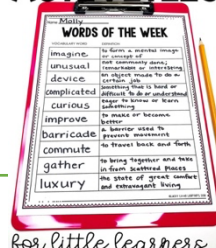 Name Molly
WORDS OF THE WEEK
VOCABULARY WORD DEFINITION
imagine to form a mental image
or concept of
unusual not commonly done;
remarkable or interesting
device an object made to do a
certain job
complicated something that is hard or
difficult to do or understand
curious eager to know or learn
something
improve to make or become
better
barricade a barrier used to
prevent movement
commute to travel back and forth
gather to bring together and take
in from scattered places
luxury the state of great comfort
and extravagant living
for little learners